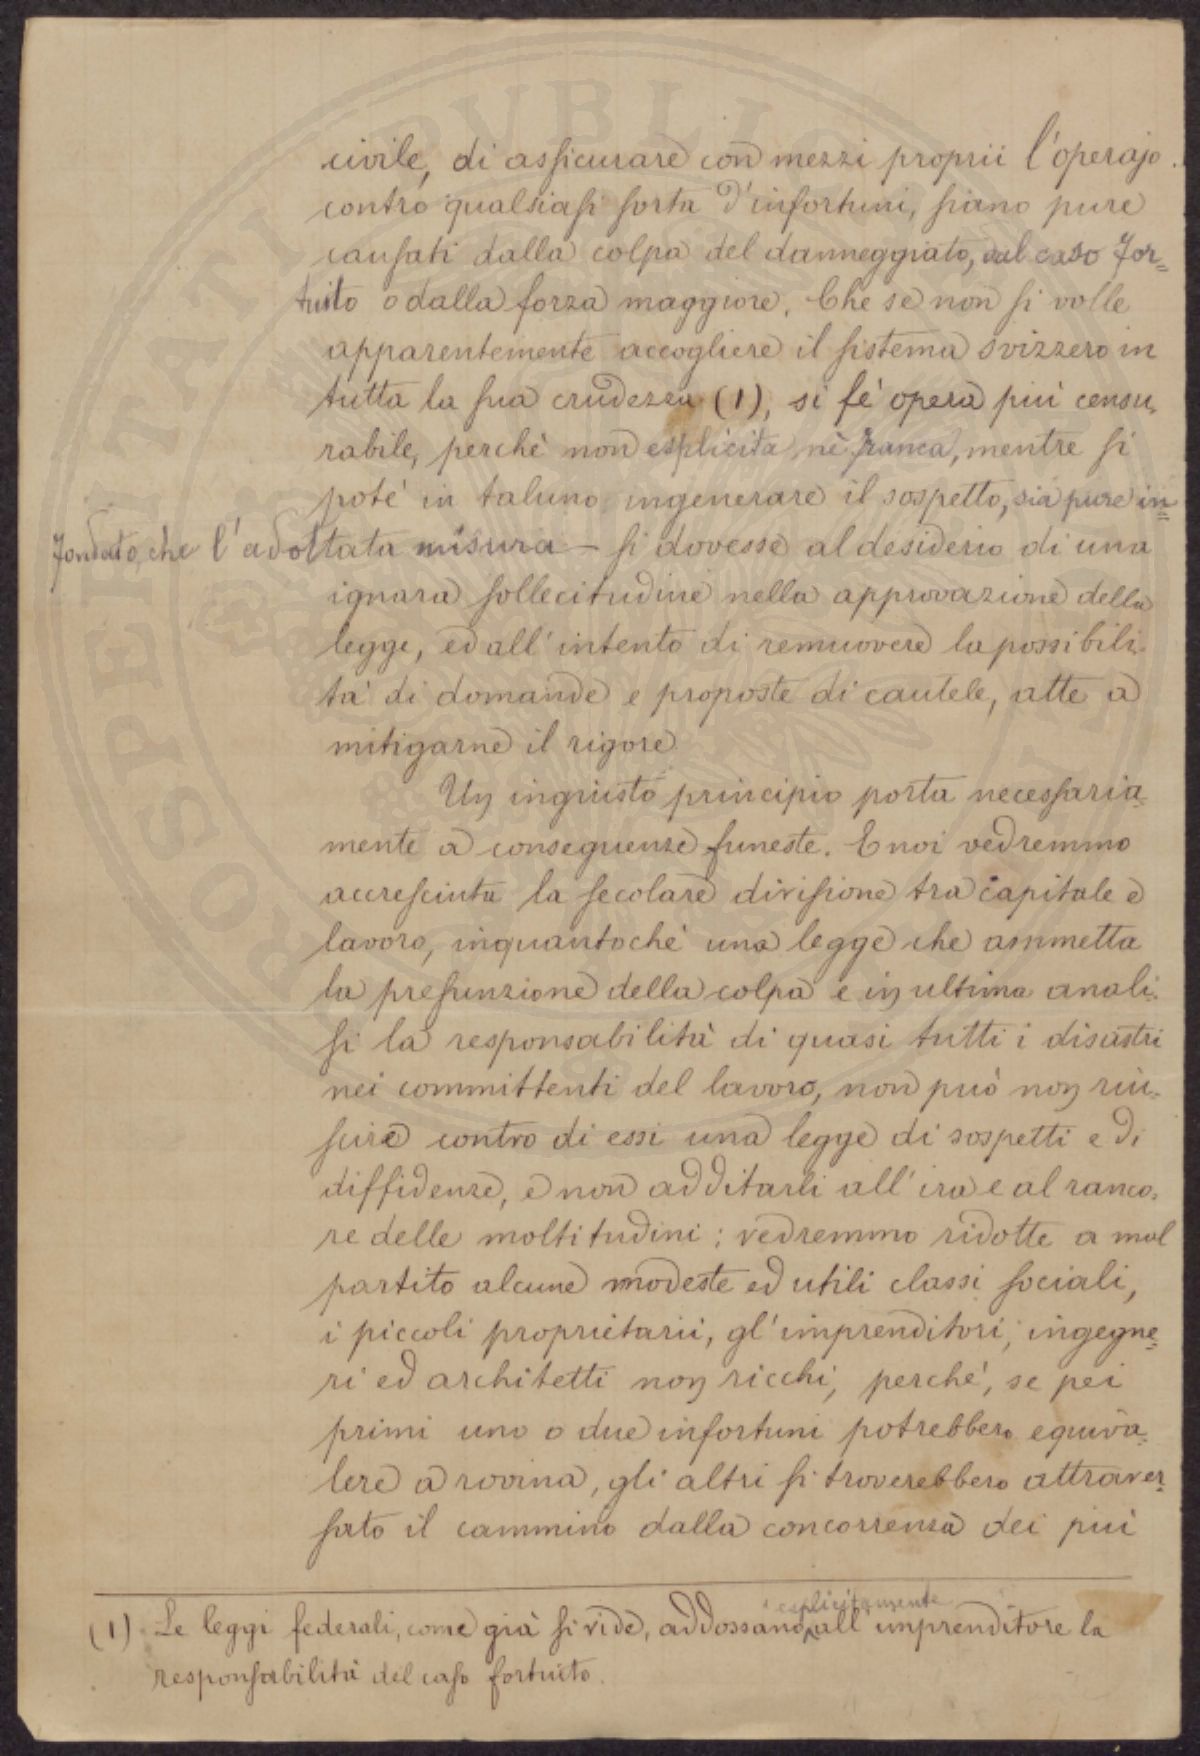 civile, di assicurare con mezzi proprii l'operajo
contro qualsiasi sorta d'infortuni, siano pure
causati dalla colpa del danneggiato, dal caso for=
tuito o dalla forza maggiore. Che se non si volle
apparentemente accogliere il sistema svizzero in
tutta la sua crudezza (1), si fe' opera più censu-
rabile, perchè non esplicita nè franca, mentre si
potè in taluno ingenerare il sospetto, sia pure in=
fondato, che l'adottata misura – si dovesse al desiderio di una
ignara sollecitudine nella approvazione della
legge, ed all'intento di remuovere la possibili-
tà di domande e proposte di cautele, atte a
mitigarne il rigore.
Un ingiusto principio porta necessaria-
mente a conseguenze funeste. E noi vedremmo
accresciuta la secolare divisione tra capitale e
lavoro, inquantochè una legge che ammetta
la presunzione della colpa e in ultima anali-
si la responsabilità di quasi tutti i disastri
nei committenti del lavoro, non può non riu-
scire contro di essi una legge di sospetti e di
diffidenze, e non additarli all'ira e al ranco-
re delle moltitudini; vedremmo ridotte a mal
partito alcune modeste ed utili classi sociali,
i piccoli proprietarii, gl'imprenditori, ingegne=
ri ed architetti non ricchi, perchè, se pei
primi uno o due infortuni potrebbero equiva-
lere a rovina, gli altri si troverebbero attraver=
sato il cammino dalla concorrenza dei più
esplicitamente
(1) Le leggi federali, come già si vide, addossano all'imprenditore la
responsabilità del caso fortuito.
PROSPERITATI PVBLI